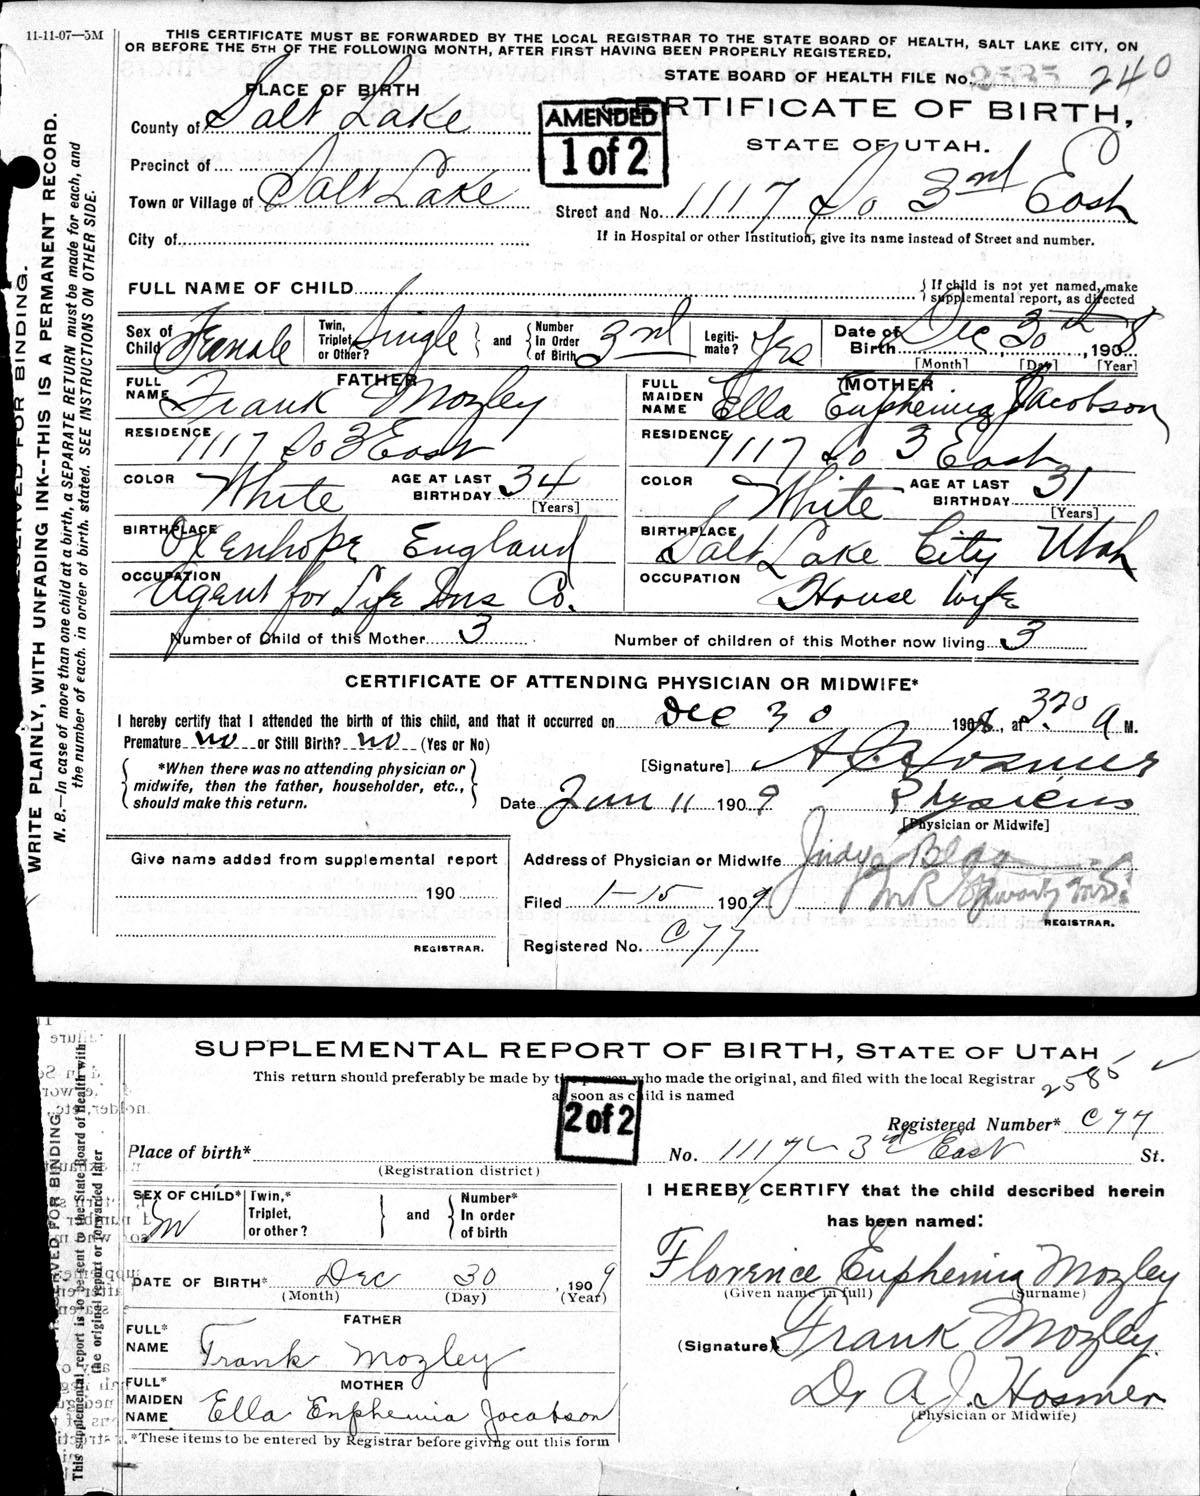 11-11-07—5M
THIS CERTIFICATE MUST BE FORWARDED BY THE LOCAL REGISTRAR TO THE STATE BOARD OF HEALTH, SALT LAKE CITY, ON
OR BEFORE THE 5TH OF THE FOLLOWING MONTH, AFTER FIRST HAVING BEEN PROPERLY REGISTERED.
STATE BOARD OF HEALTH FILE No. 2585 240
PLACE OF BIRTH
CERTIFICATE OF BIRTH,
STATE OF UTAH.
AMENDED
1 of 2
County of Salt Lake
Precinct of
Town or Village of Salt Lake
Street and No. 1117 So 3rd East
City of
If in Hospital or other Institution, give its name instead of Street and number.
FULL NAME OF CHILD
{If child is not yet named, make supplemental report, as directed
Sex of Child Female Twin, Triplet, or Other? Single } and { Number In Order of Birth 3rd Legiti-mate? Yes Date of Birth Dec 30th, 1908
[Month] [Day] [Year]
FATHER MOTHER
FULL NAME Frank Mozley FULL MAIDEN NAME Ella Euphemia Jacobson
RESIDENCE 1117 So 3 East RESIDENCE 1117 So 3 East
COLOR White AGE AT LAST BIRTHDAY 34 [Years] COLOR White AGE AT LAST BIRTHDAY 31 [Years]
BIRTHPLACE Oxenhope England BIRTHPLACE Salt Lake City Utah
OCCUPATION Agent for Life Ins Co. OCCUPATION House Wife
Number of Child of this Mother 3 Number of children of this Mother now living 3
CERTIFICATE OF ATTENDING PHYSICIAN OR MIDWIFE*
I hereby certify that I attended the birth of this child, and that it occurred on Dec 30 1908, at 3.20 a M.
Premature no or Still Birth? no (Yes or No)
*When there was no attending physician or midwife, then the father, householder, etc., should make this return.
[Signature] A J Hosmer
Date Jan 11 1909 Physician
[Physician or Midwife]
Give name added from supplemental report
190
REGISTRAR.
Address of Physician or Midwife Judge Bldg
Filed 1-15 1909
REGISTRAR.
Registered No. C77
WRITE PLAINLY, WITH UNFADING INK--THIS IS A PERMANENT RECORD.
RESERVED FOR BINDING.
N. B.—In case of more than one child at a birth, a SEPARATE RETURN must be made for each, and
the number of each, in order of birth, stated. SEE INSTRUCTIONS ON OTHER SIDE.
SUPPLEMENTAL REPORT OF BIRTH, STATE OF UTAH
This return should preferably be made by the person who made the original, and filed with the local Registrar
as soon as child is named
2585
2 of 2
Registered Number* C77
Place of birth*
(Registration district)
No. 1117 3rd East St.
SEX OF CHILD* M Twin,* Triplet, or other? } and { Number* In order of birth
I HEREBY CERTIFY that the child described herein
has been named:
Florence Euphemia Mozley
(Given name in full) (Surname)
DATE OF BIRTH* Dec 30, 1909
(Month) (Day) (Year)
FATHER
FULL* NAME Frank Mozley
(Signature) Frank Mozley.
MOTHER
FULL* MAIDEN NAME Ella Euphemia Jacobson
Dr A. J. Hosmer
(Physician or Midwife)
*These items to be entered by Registrar before giving out this form
RESERVED FOR BINDING
This supplemental report is to be sent to the State Board of Health with
the original report or forwarded later